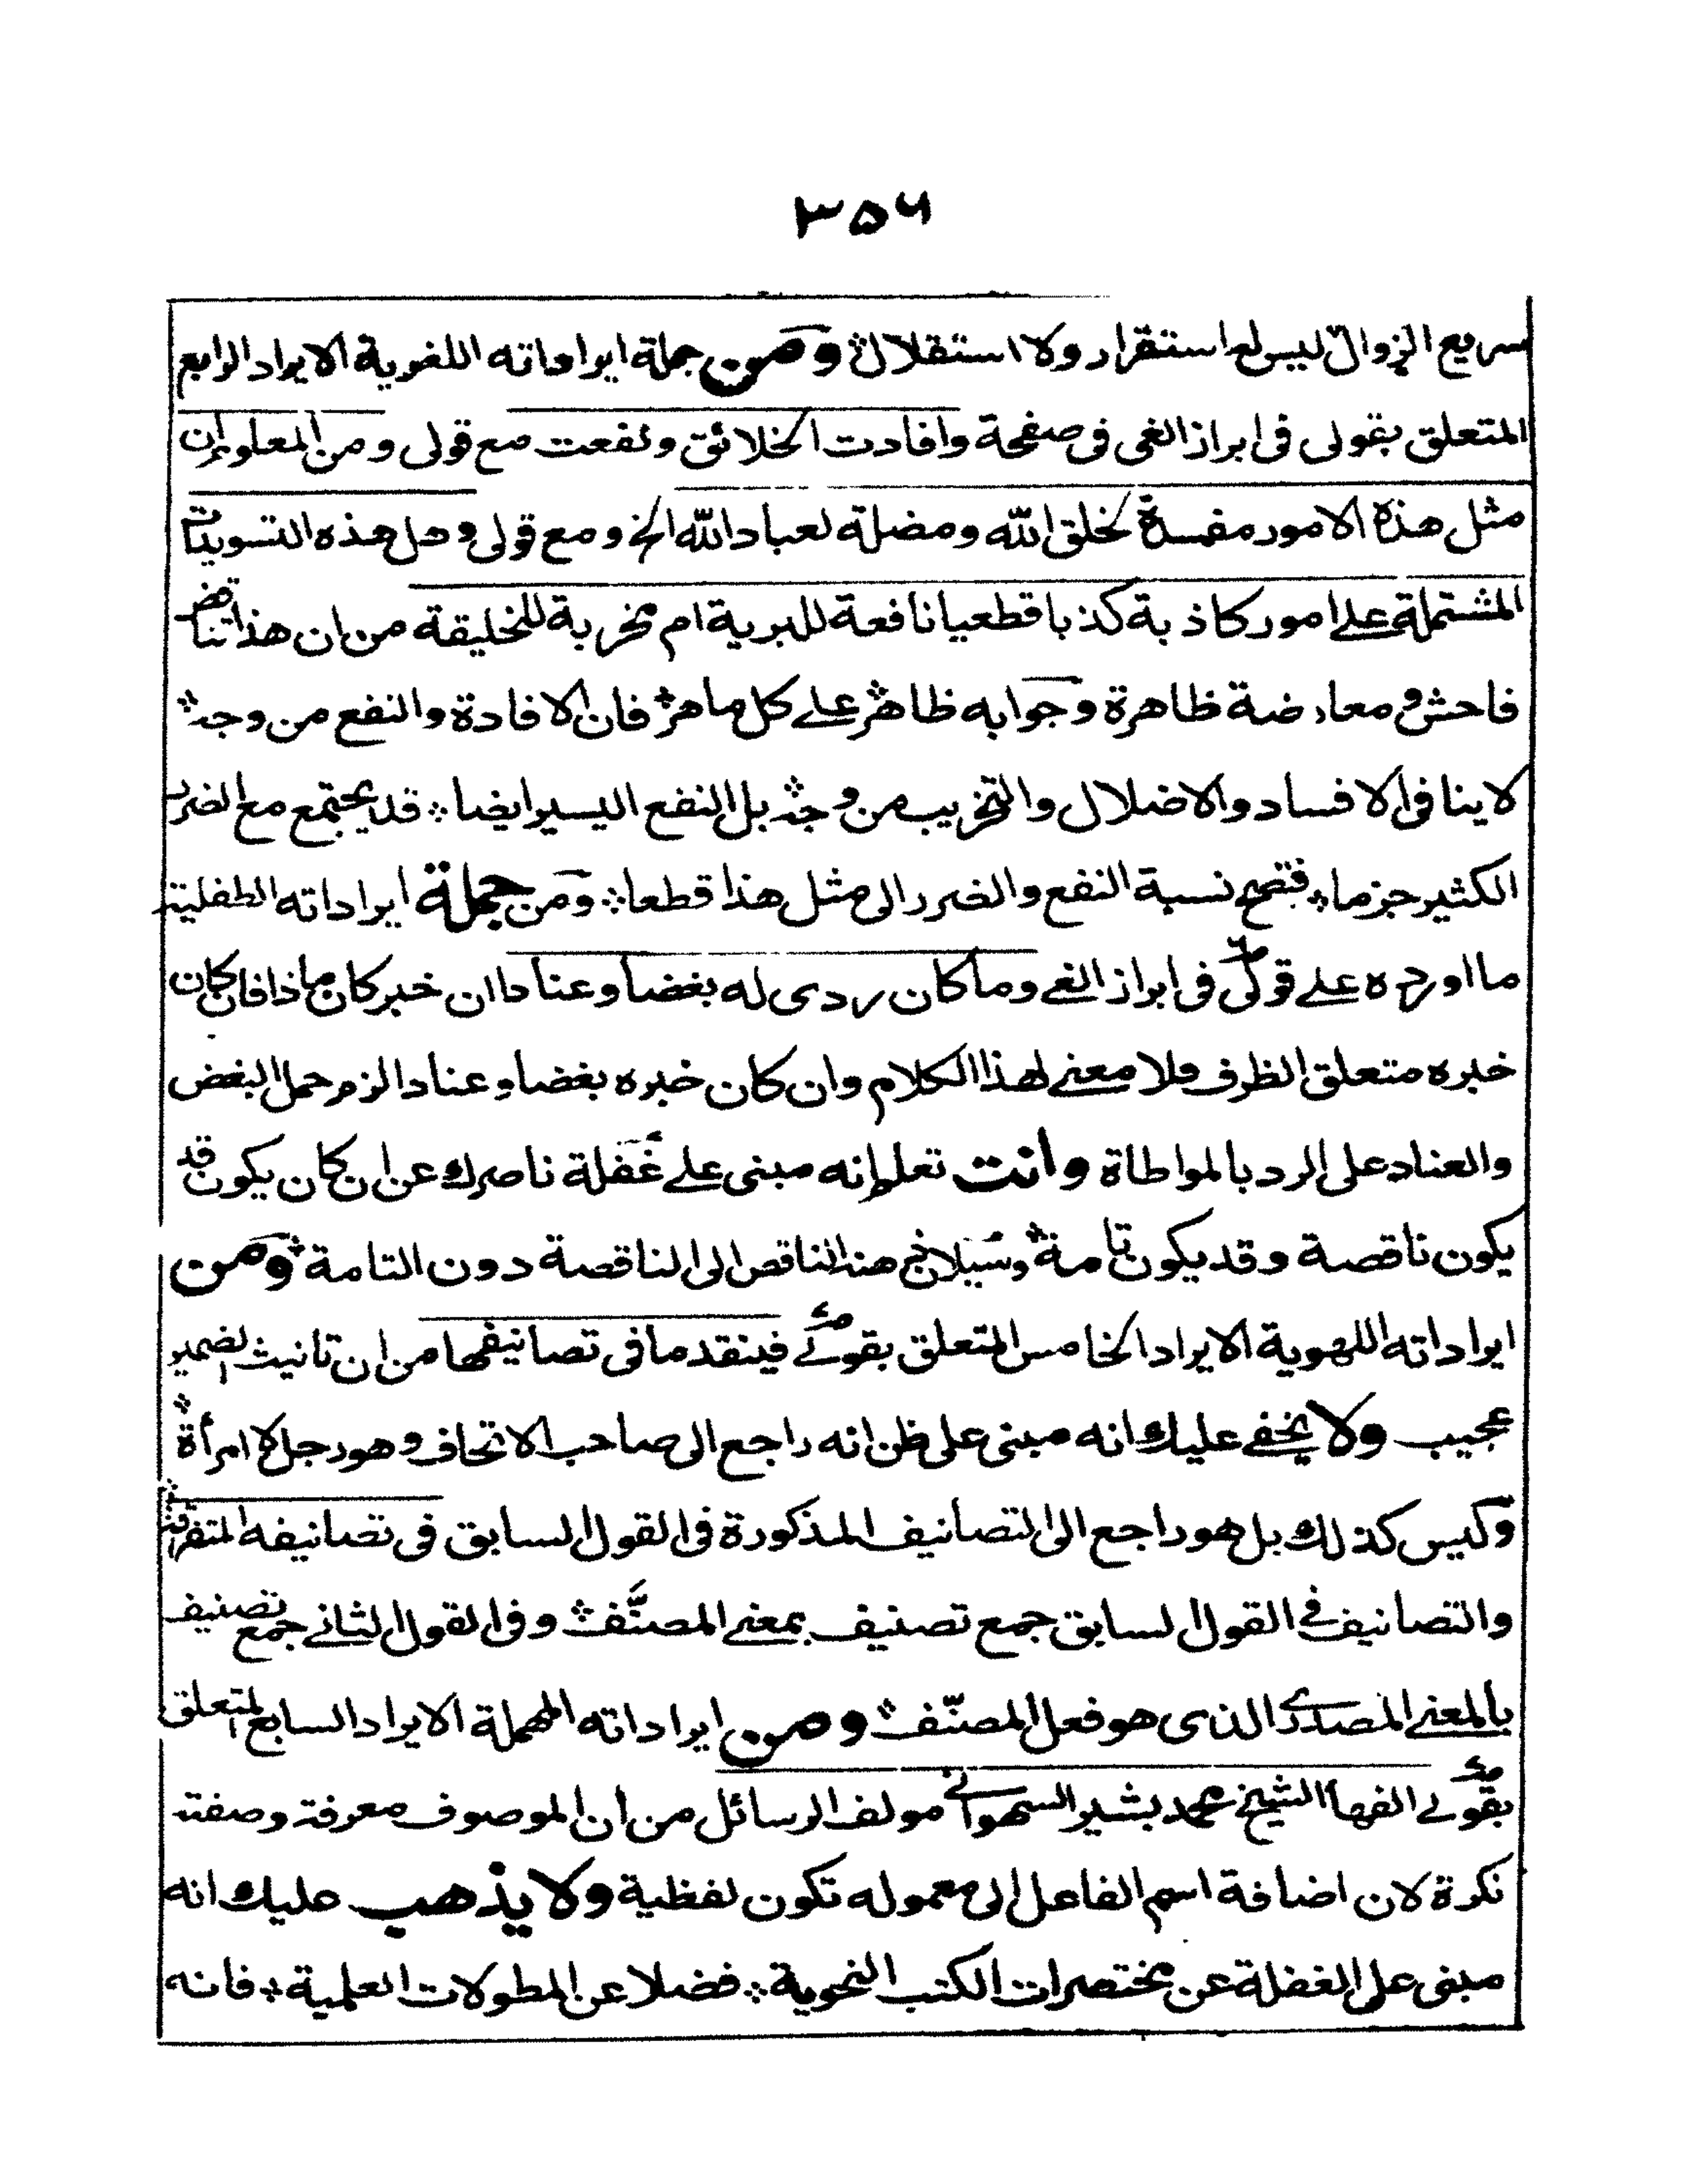 ۳۵۶
سريع الزوال ليس له استقرار ولا استقلال ومن جملة ايراداته اللغوية الايراد الرابع
المتعلق بقولى فى ابراز الغى فى صفحة وافادت الخلائق ونفعت مع قولى ومن المعلوم ان
مثل هذه الامور مفسدة لخلق الله ومضلة لعباد الله الخ ومع قولى وهل هذه التسويدات
المشتملة على امور كاذبة كذبا قطعيا نافعة للبرية ام مخربة للخليقة من ان هذا تناقض
فاحش ومعارضة ظاهرة وجوابه ظاهر على كل ماهر فان الافادة والنفع من وجه
لا ينافى الافساد والاضلال والتخريب من وجه بل النفع اليسير ايضا قد يجتمع مع الضرر
الكثير جزما فتصح نسبة النفع والضرر الى مثل هذا قطعا ومن جملة ايراداته الطفلية
ما اورده على قولى فى ابراز الغى وما كان ردى له بغضا وعنادا ان خبر كان ماذا فان كان
خبره متعلق الظرف فلا معنى لهذا الكلام وان كان خبره بغضا وعنادا لزم حمل البغض
والعناد على الرد بالمواطاة وانت تعلم انه مبنى على غفلة ناصرك عن ان كان يكون قد
يكون ناقصة وقد يكون تامة هذا الناقص الى الناقصة دون التامة ومن
ايراداته اللهوية الايراد الخامس المتعلق بقولى فينقد ما فى تصانيفها من ان تانيث الضمير
عجيب ولا يخفى عليك انه مبنى على ظن انه راجع الى صاحب الاتحاف وهو رجل لا امرأة
وليس كذلك بل هو راجع الى التصانيف المذكورة فى القول السابق فى تصانيفه المتفرقة
والتصانيف فى القول السابق جمع تصنيف بمعنى المصنَّف وفى القول الثانى جمع تصنيف
بالمعنى المصدرى الذى هو فعل المصنّف ومن ايراداته المهملة الايراد السابع المتعلق
بقولى الفها الشيخ محمد بشير السهسوانى مولف الرسائل من ان الموصوف معرفة وصفته
نكرة لان اضافة اسم الفاعل الى معموله تكون لفظية ولا يذهب عليك انه
مبنى على الغفلة عن مختصرات الكتب النحوية فضلا عن المطولات العلمية فانه